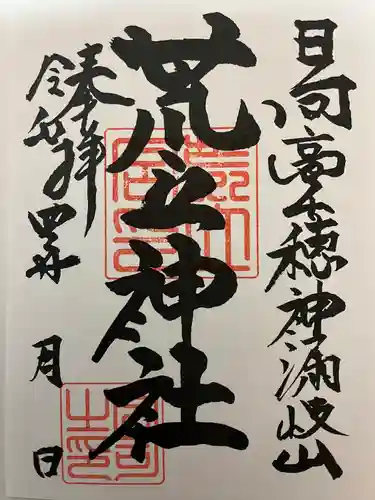 日向高千穂神漏岐山
荒立神社
奉拝
令和四年 月 日